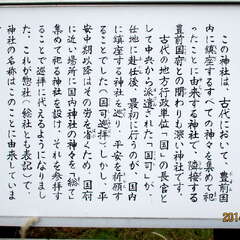 この神社は、古代において、豊前国
内に鎮座するすべての神々を集めて祀
ったことに由来する神社で、隣接する
豊前国府との関わりも深い神社です。
古代の地方行政単位「国」の長官と
して中央から派遣された「国司」が、
任地に赴任後、最初に行うのが、国内
に鎮座する神社を巡り、平安を祈願す
ることでした(国司巡拝)。しかし、平
安中期以降はその労を省くため、国府
に近い場所に国内神社の神々を「総て」
集めて祀る神社を設け、それを参拝す
ることで巡拝に代えるようになりまし
た。これが惣社(総社とも表記)で、
神社の名称はこのことに由来していま
2014